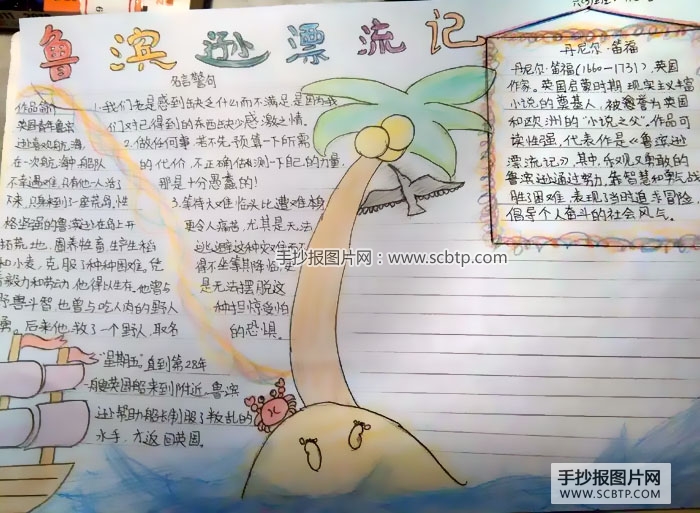 鲁滨逊漂流记
名言警句
作品简介
英国青年鲁滨
逊喜欢航海,
在一次航海中,船队
不幸遇难,只有他一人活了
下来,只身来到了一座荒岛,性
格坚强的鲁滨逊在岛上开
拓荒地,圈养牲畜,生产水稻
和小麦,克服了种种困难,凭
着毅力和劳动,他得以生存,他曾与
野兽斗智,也曾与吃人肉的野人
斗勇。后来他,救了一个野人,取名
“星期五”。直到第28年
一艘英国船来到附近,鲁滨
逊帮助船长制服了叛乱的
水手,才返回英国。
1.我们老是感到缺乏什么而不满足,是因为我
们对已得到的东西缺少感激之情。
2.做任何事,若不先预算一下所需
的代价,不正确估测一下自己的力量,
那是十分愚蠢的!
3.等待大难临头比遭难本身
更令人痛苦,尤其是无法
逃避这种灾难而不
得不坐等其降临,更
是无法摆脱这
种担惊受怕
的恐惧。
丹尼尔·笛福
丹尼尔·笛福(1660—1731),英国
作家。英国启蒙时期现实主义丰富
小说的奠基人,被誉为英国
和欧洲的“小说之父”。作品可
读性强,代表作是《鲁滨逊
漂流记》,其中,乐观又勇敢的
鲁滨逊通过努力,靠智慧和勇气战
胜了困难,表现了当时追求冒险,
倡导个人奋斗的社会风气。
手抄报图片网:www.scbtp.com
手抄报图片网
WWW.SCBTP.COM